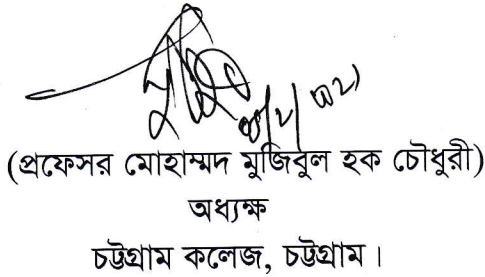 (প্রফেসর মোহাম্মদ মুজিবুল হক চৌধুরী)
অধ্যক্ষ
চট্টগ্রাম কলেজ, চট্টগ্রাম।